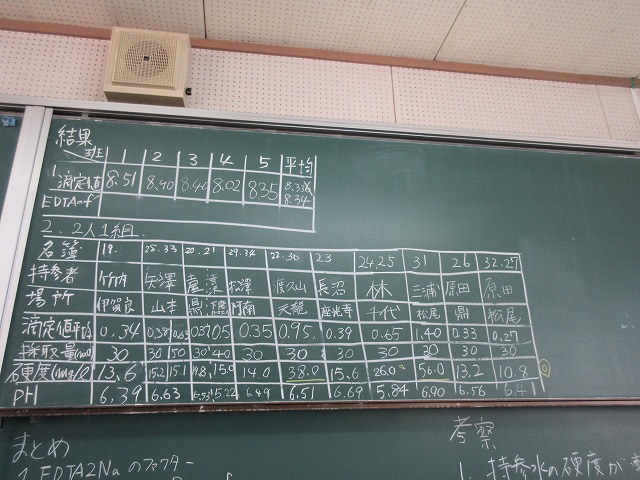 結果
班 1 2 3 4 5 平均
1. 滴定値 8.51 8.40 8.02 8.35 8.34
EDTAnf
2. 2人1組.
名簿 25.33 20.21 29.34 22.30 23 24,25 31 26 32.27
持参者 竹内 矢澤 松澤 長沼 林 三浦 原田 原田
場所 伊賀良 山本 阿南 天龍 座光寺 千代 松尾 鼎 松尾
滴定値平均 0.34 0.38 0.63 0.37 0.5 0.35 0.95 0.39 0.65 1.40 0.33 0.27
採取量(ml) 30 30 50 30 40 30 30 30 30 30 30 30
硬度(mg/l) 13.6 15.2 15.1 14.8 15.0 14.0 38.0 15.6 26.0 56.0 13.2 10.8
PH 6.39 6.63 6.49 6.51 6.69 5.84 6.90 6.56 6.41
まとめ
1. EDTA2Naのファクター
考察
1. 持参水の硬度が